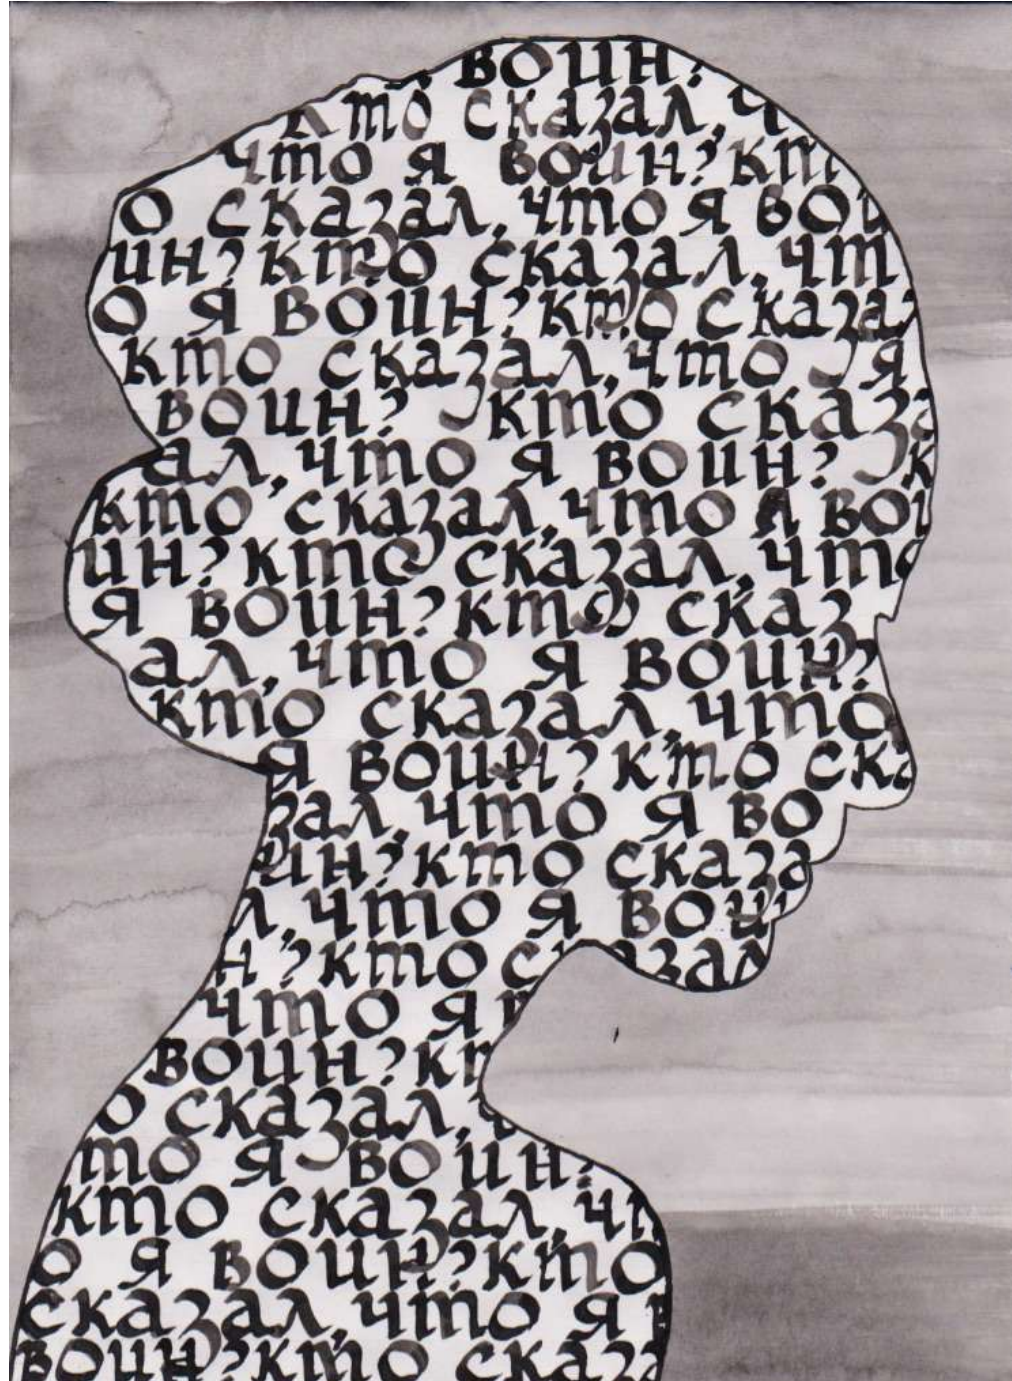 воин?
кто сказал, ч
что я воин? кто
о сказал, что я вои
ин? кто сказал, чт
о я воин? кто сказал
кто сказал, что я
воин? кто сказ
ал, что я воин? к
кто сказал, что я вои
ин? кто сказал, что
я воин? кто сказ
ал, что я воин?
кто сказал, что
я воин? кто ска
зал, что я во
ин? кто сказа
л, что я вои
н? кто сказал
что я в
воин? кт
о сказал, ч
то я воин?
кто сказал, чт
о я воин? кто
сказал, что я в
воин? кто сказа